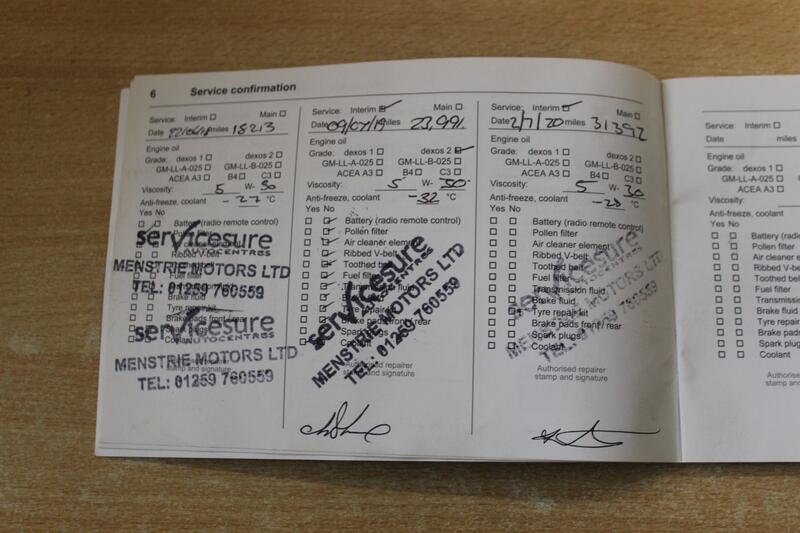 6 Service confirmation
Service: Interim Main
Date miles 18213
Engine oil
Grade: dexos 1 dexos 2
GM-LL-A-025 GM-LL-B-025
ACEA A3 B4 C3
Viscosity: 5 W- 30
Anti-freeze, coolant -27 °C
Yes No
Battery (radio remote control)
Pollen filter
servicesure
AUTOCENTRES
Ribbed V-belt
MENSTRIE MOTORS LTD
Fuel filter
TEL: 01259 760559
Brake fluid
Tyre repair kit
servicesure
Brake pads front / rear
AUTOCENTRES
Coolant
MENSTRIE MOTORS LTD
stamp and signature
TEL: 01259 760559
Service: Interim Main
Date 09/07/19 miles 23,991
Engine oil
Grade: dexos 1 dexos 2
GM-LL-A-025 GM-LL-B-025
ACEA A3 B4 C3
Viscosity: 5 W- 30
Anti-freeze, coolant -32 °C
Yes No
Battery (radio remote control)
Pollen filter
Air cleaner element
Ribbed V-belt
Toothed belt
Fuel filter
Transmission fluid
Brake fluid
Tyre repair kit
Brake pads front / rear
Spark plugs
Coolant
servicesure
AUTOCENTRES
MENSTRIE MOTORS LTD
TEL: 01259 760559
Authorised repairer
stamp and signature
Service: Interim Main
Date 2/7/20 miles 31392
Engine oil
Grade: dexos 1 dexos 2
GM-LL-A-025 GM-LL-B-025
ACEA A3 B4 C3
Viscosity: 5 W- 30
Anti-freeze, coolant -28 °C
Yes No
Battery (radio remote control)
Pollen filter
Air cleaner element
Ribbed V-belt
Toothed belt
Fuel filter
Transmission fluid
Brake fluid
Tyre repair kit
Brake pads front / rear
Spark plugs
Coolant
servicesure
AUTOCENTRES
MENSTRIE MOTORS LTD
TEL: 01259 760559
Authorised repairer
stamp and signature
Service: Interim
Date miles
Engine oil
Grade: dexos 1
GM-LL-A-025
ACEA A3
Viscosity:
Anti-freeze, coolant
Yes No
Battery (radio
Pollen filter
Air cleaner e
Ribbed V-belt
Toothed be
Fuel filter
Transmission
Brake fluid
Tyre repair
Brake pads
Spark plugs
Coolant
Authorised
stamp and